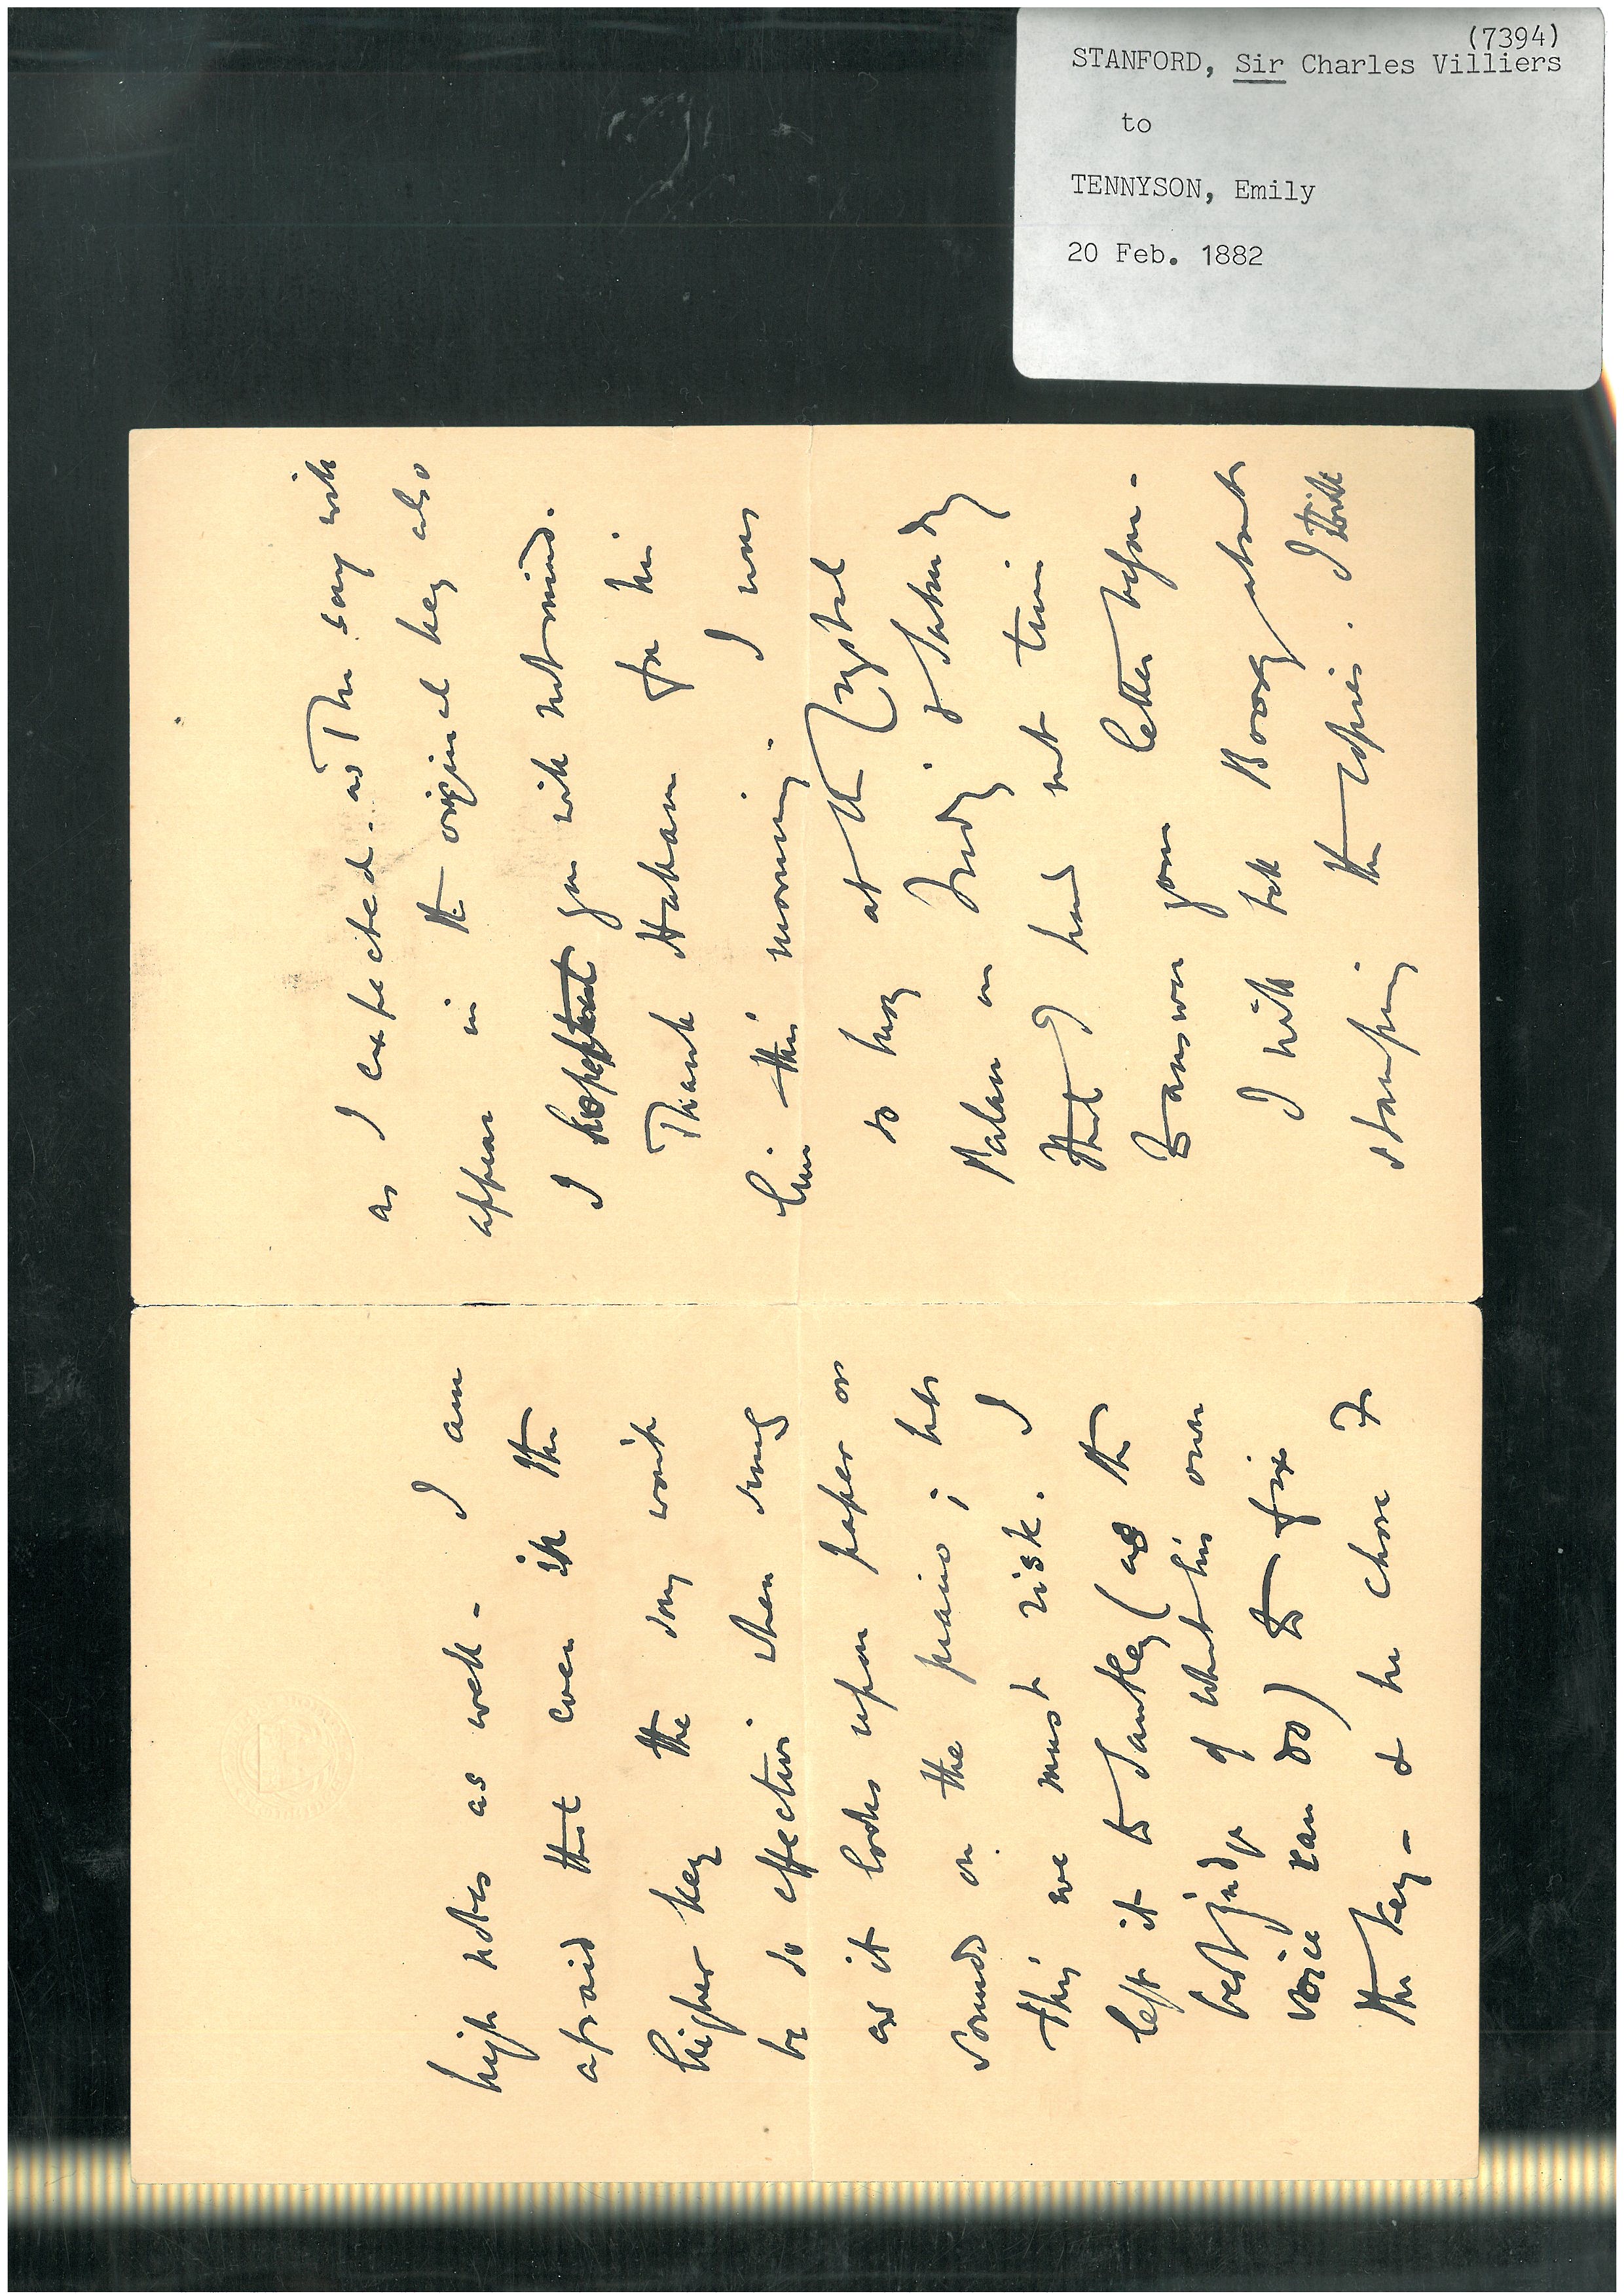 (7394)
STANFORD, Sir Charles Villiers
to
TENNYSON, Emily
20 Feb. 1882
high notes as well - I am
afraid that even in the
higher key the song won't
be so effective when sung
as it looks upon paper or
sounds on the piano; but
this we must risk. I
left it to Santley (as the
best judge of what his own
voice can do) to fix
the key - & he chose F
as I expected. The song will
appear in the original key also
I you will not mind.
Thank Hallam for his
line this morning. I was
so busy at the Crystal
Palace on Friday & Saturday
that I had not time
to answer your letter before.
I will tell Boosey about
stamping the copies. I think